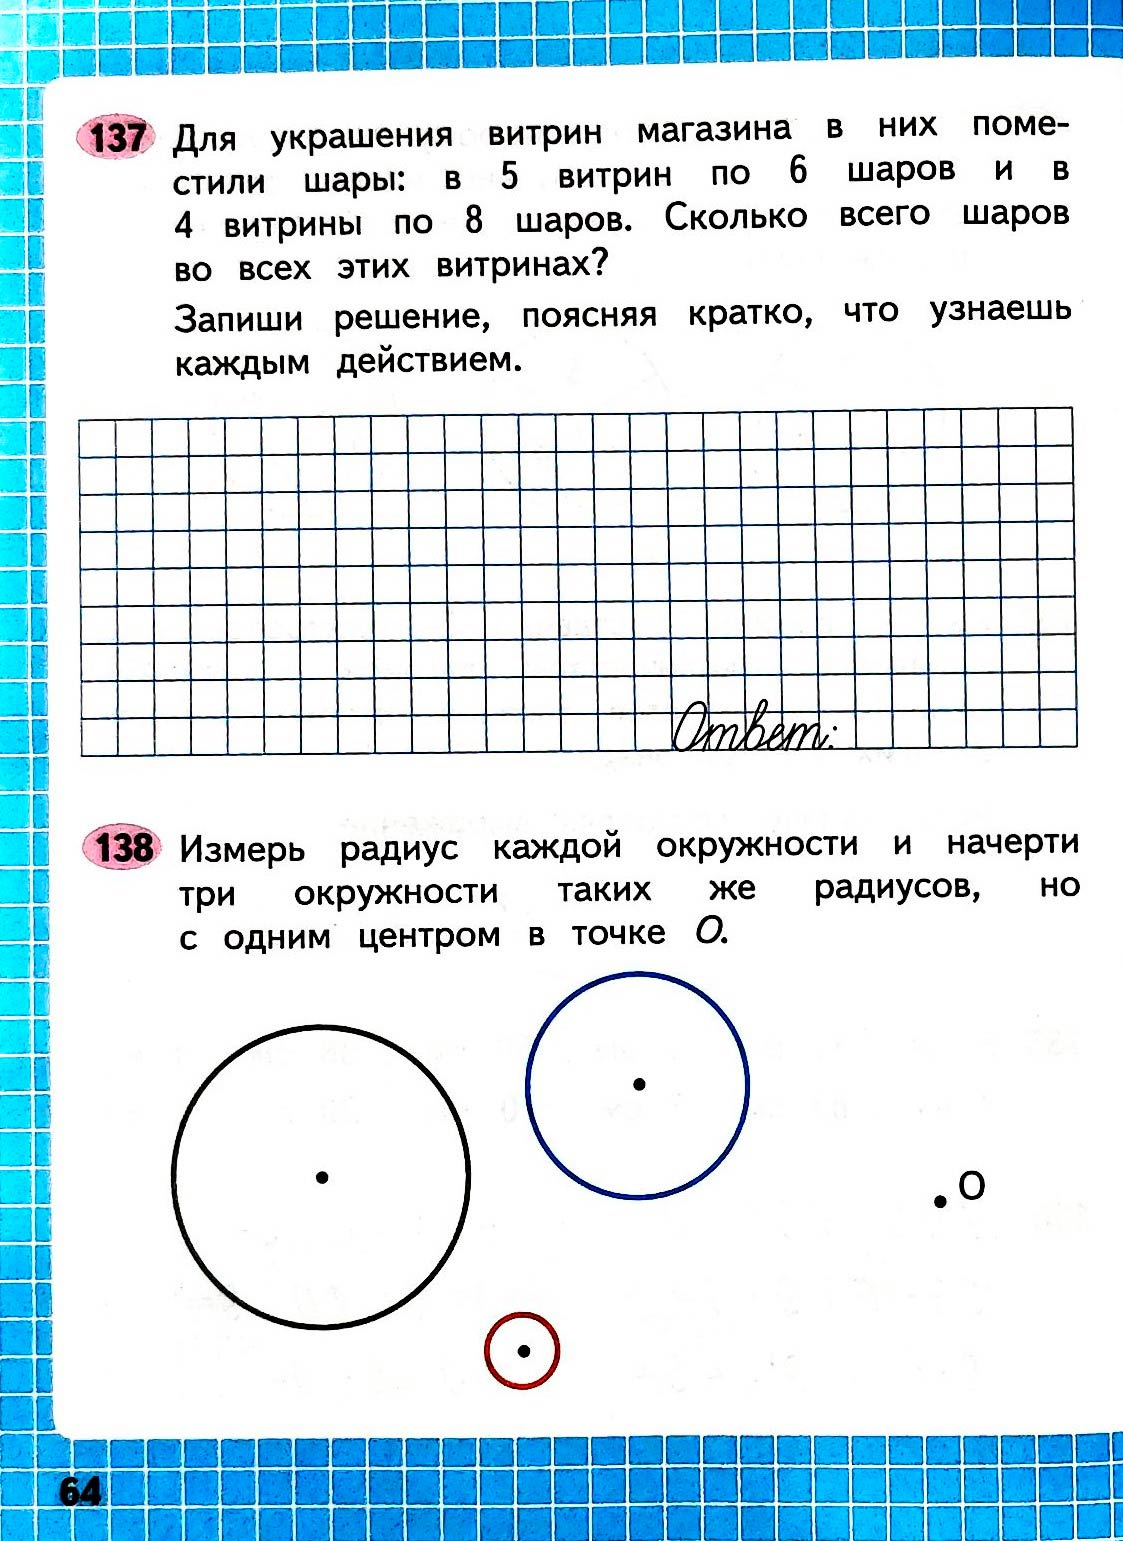 137 Для украшения витрин магазина в них поме-
стили шары: в 5 витрин по 6 шаров и в
4 витрины по 8 шаров. Сколько всего шаров
во всех этих витринах?
Запиши решение, поясняя кратко, что узнаешь
каждым действием.
Ответ:
138 Измерь радиус каждой окружности и начерти
три окружности таких же радиусов, но
с одним центром в точке О.
О
64